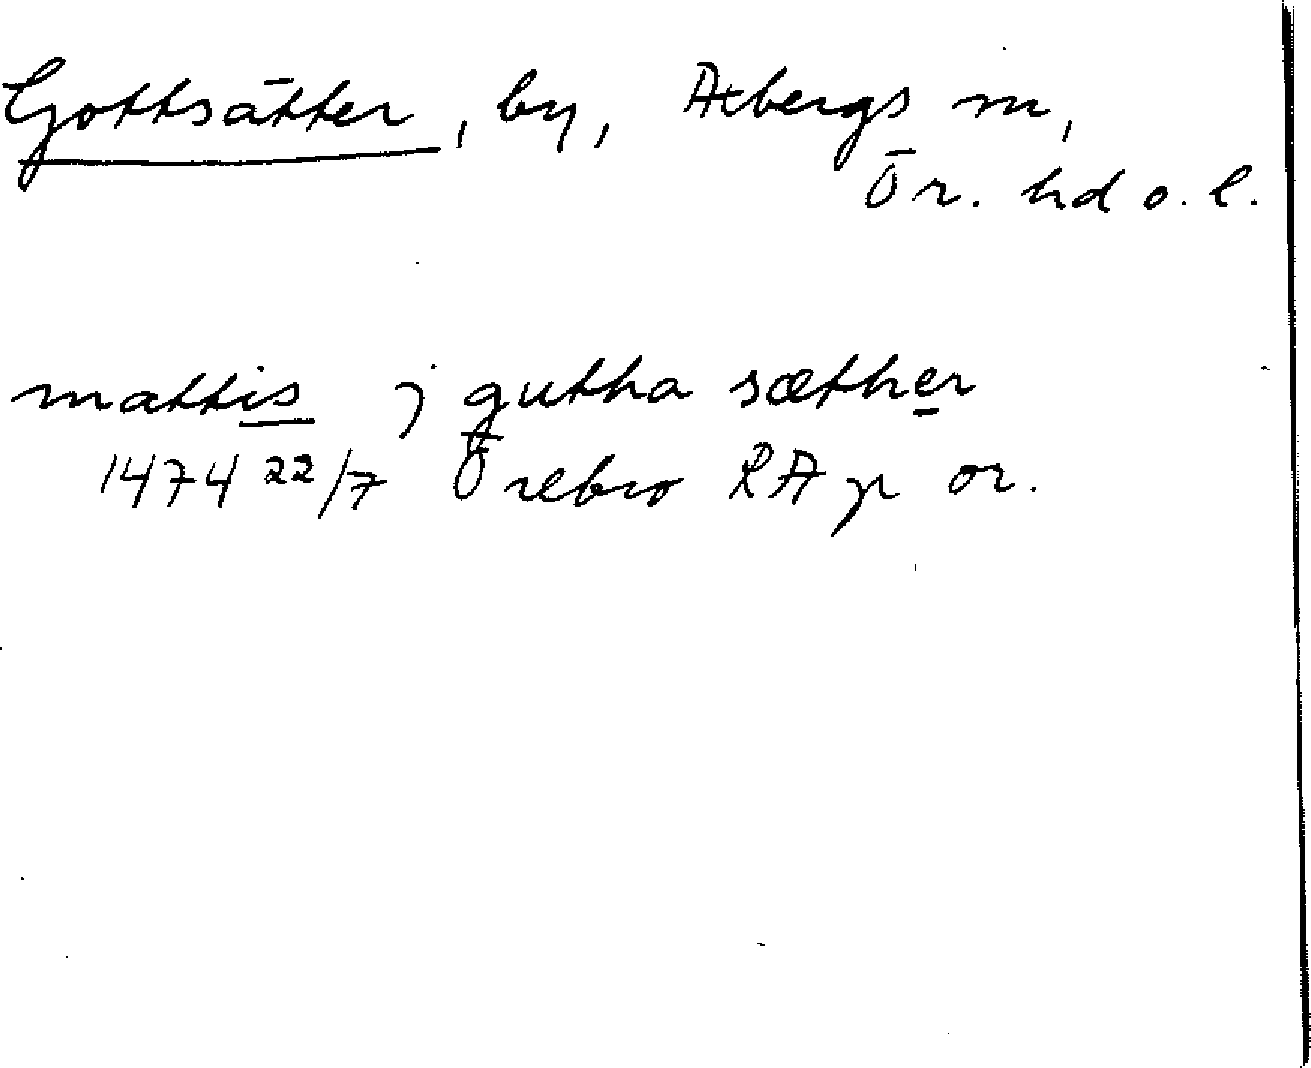 Gottsätter, by, Axbergs sn,
Ör. hd o. l.
mattis j guttha sæther
1474 22/7 Örebro RA p or.